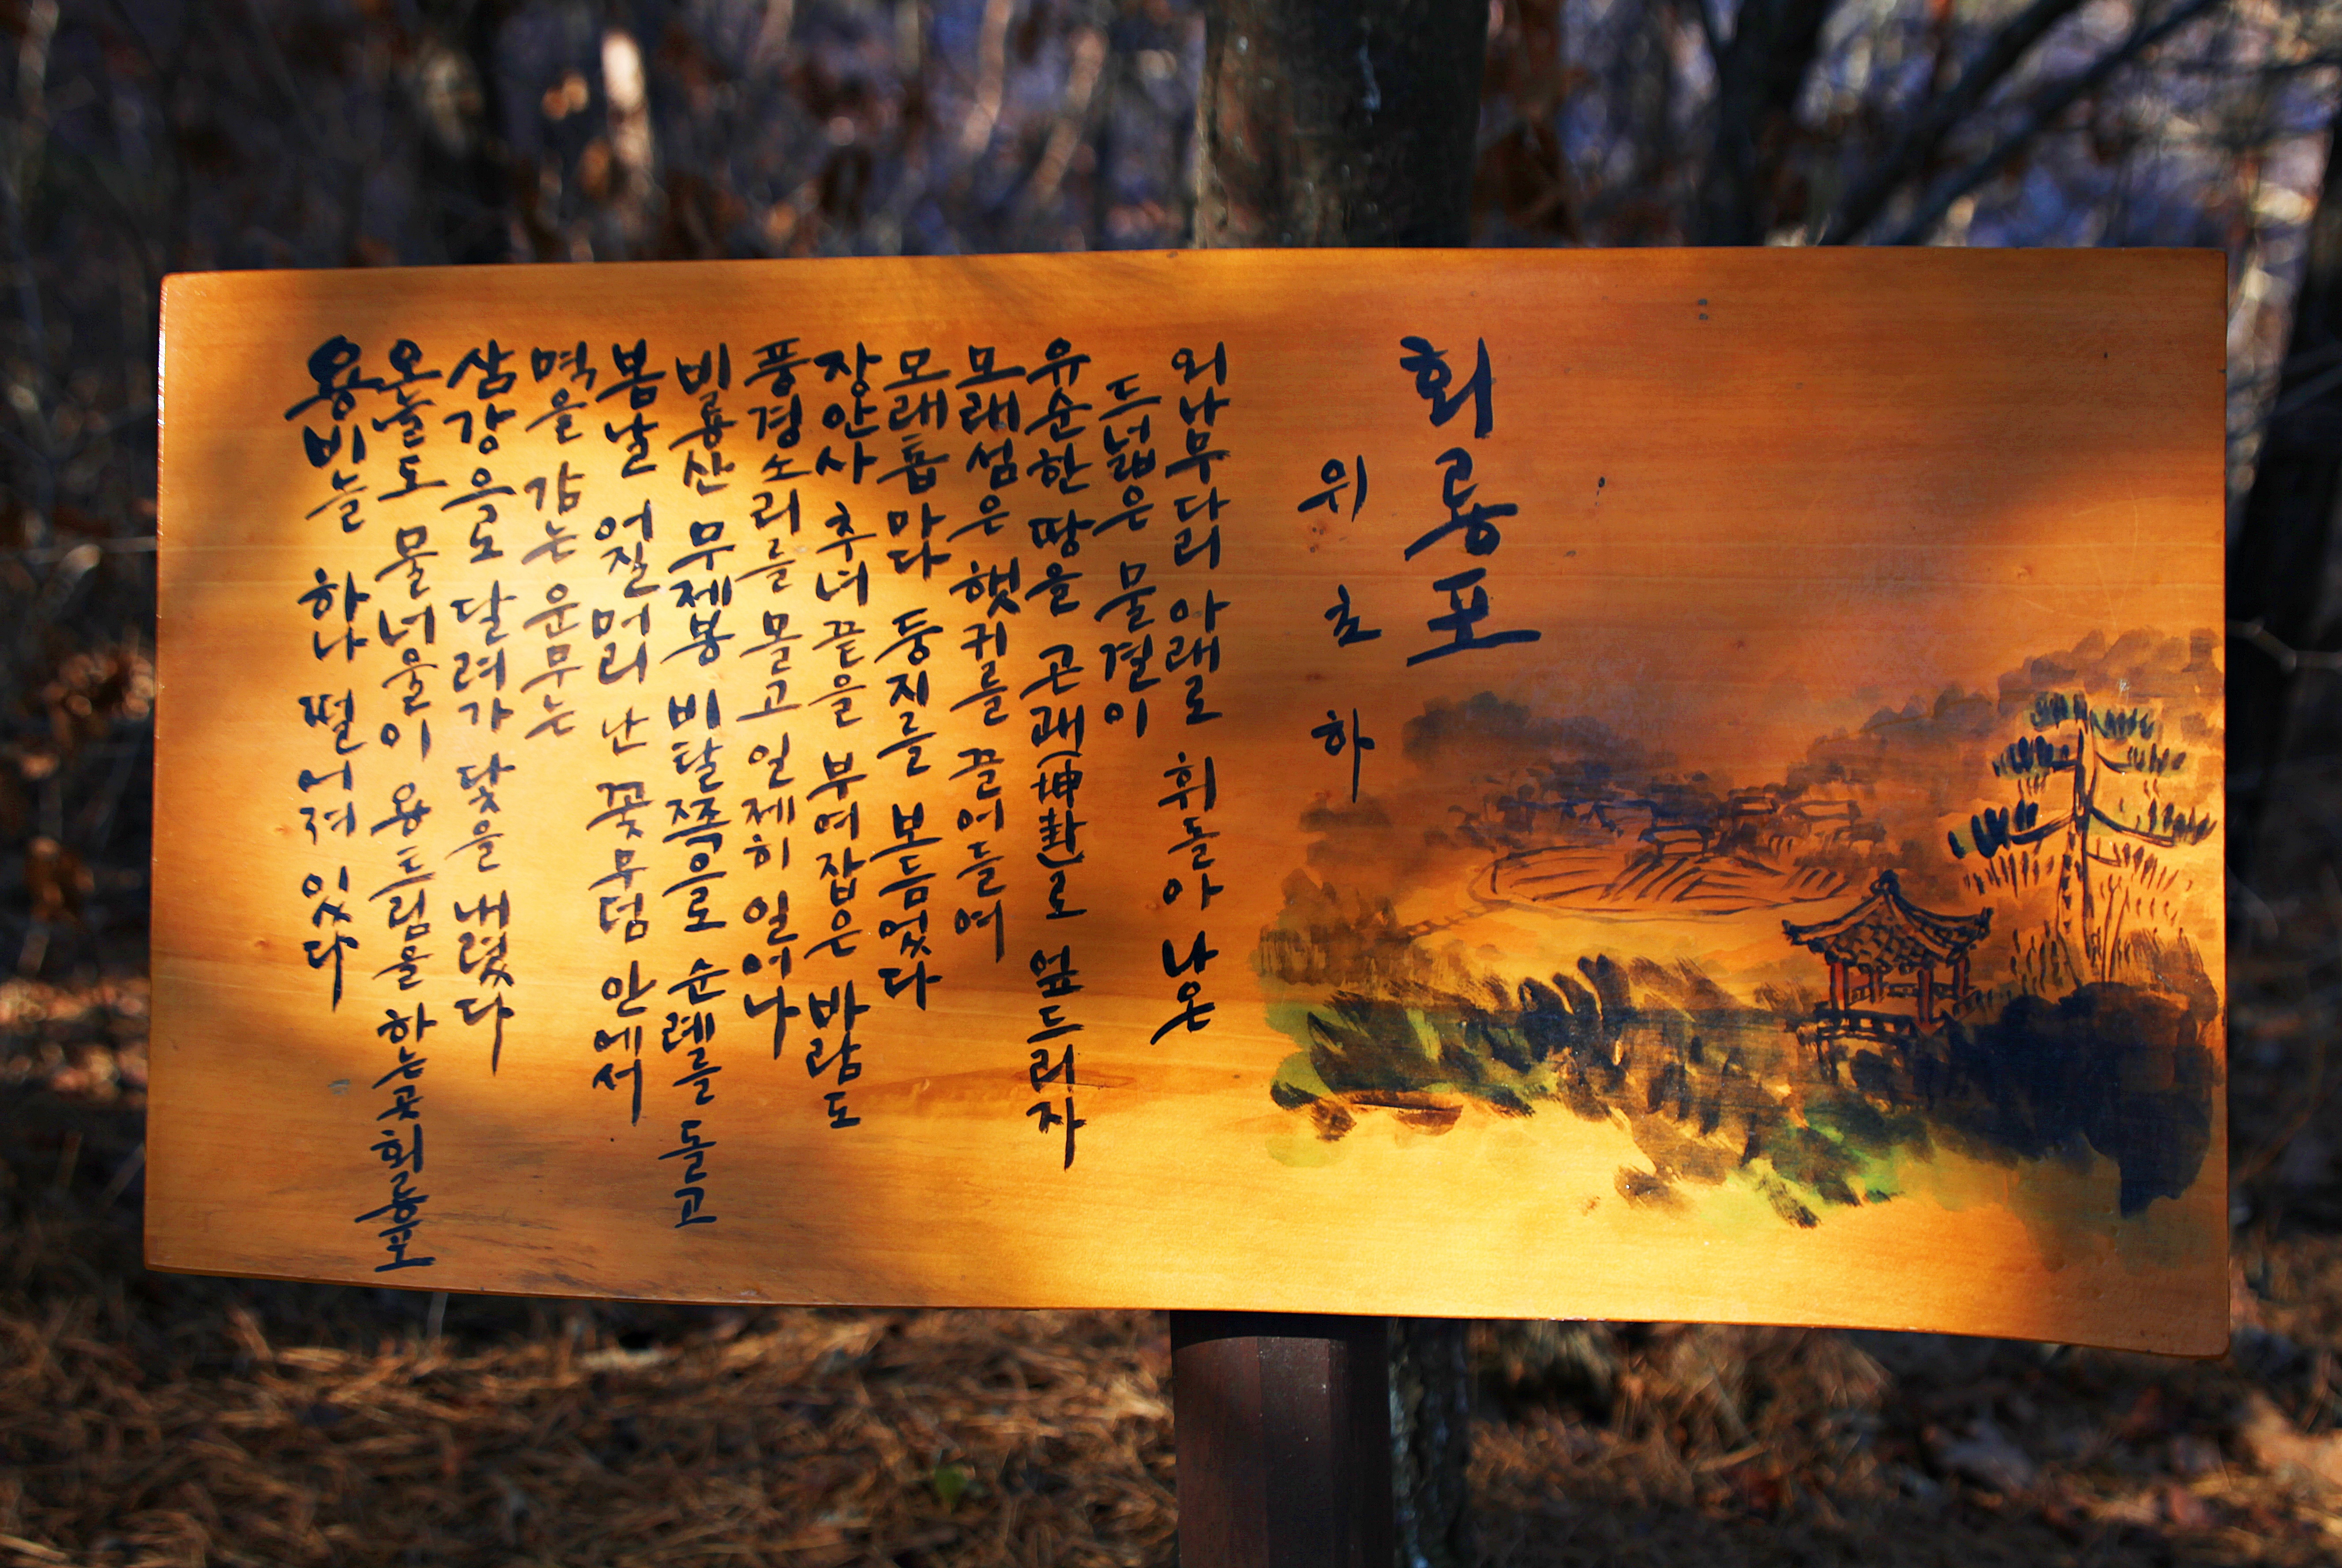 회룡포
위초하
외나무다리 아래로 휘돌아 나온
드넓은 물결이
유순한 땅을 곤괘(坤卦)로 엎드리자
모래섬은 햇귀를 끌어들여
모래톱마다 둥지를 보듬었다
장안사 추녀 끝을 부여잡은 바람도
풍경소리를 몰고 언제히 일어나
비룡산 무제봉 비탈쪽으로 순례를 돌고
봄날 어질머리 난 꽃무덤 안에서
멱을 감는 운무는
삼강으로 달려가 닻을 내렸다
오늘도 물너울이 용트림을 하는 곳 회룡포
용비늘 하나 떨어져 있다